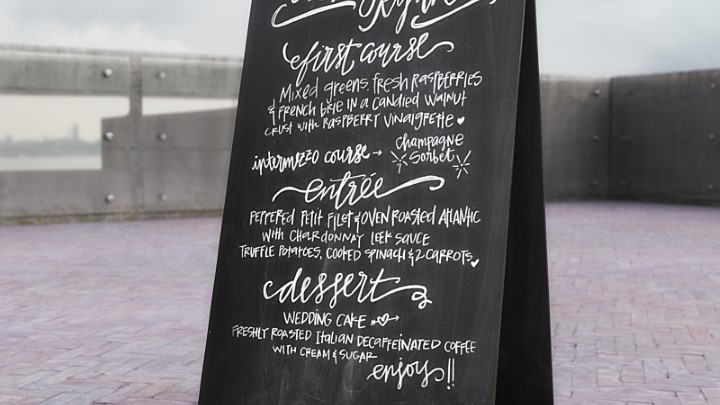 first course
Mixed greens, fresh Raspberries
& French brie in a candied walnut
crust with Raspberry Vinaigrette
intermezzo course → champagne
sorbet
entrée
Peppered Petit Filet & Oven Roasted Atlantic
with Chardonnay Leek Sauce
Truffle Potatoes, cooked spinach & 2 carrots
dessert
Wedding Cake
Freshly Roasted Italian Decaffeinated Coffee
with Cream & Sugar
enjoy!!